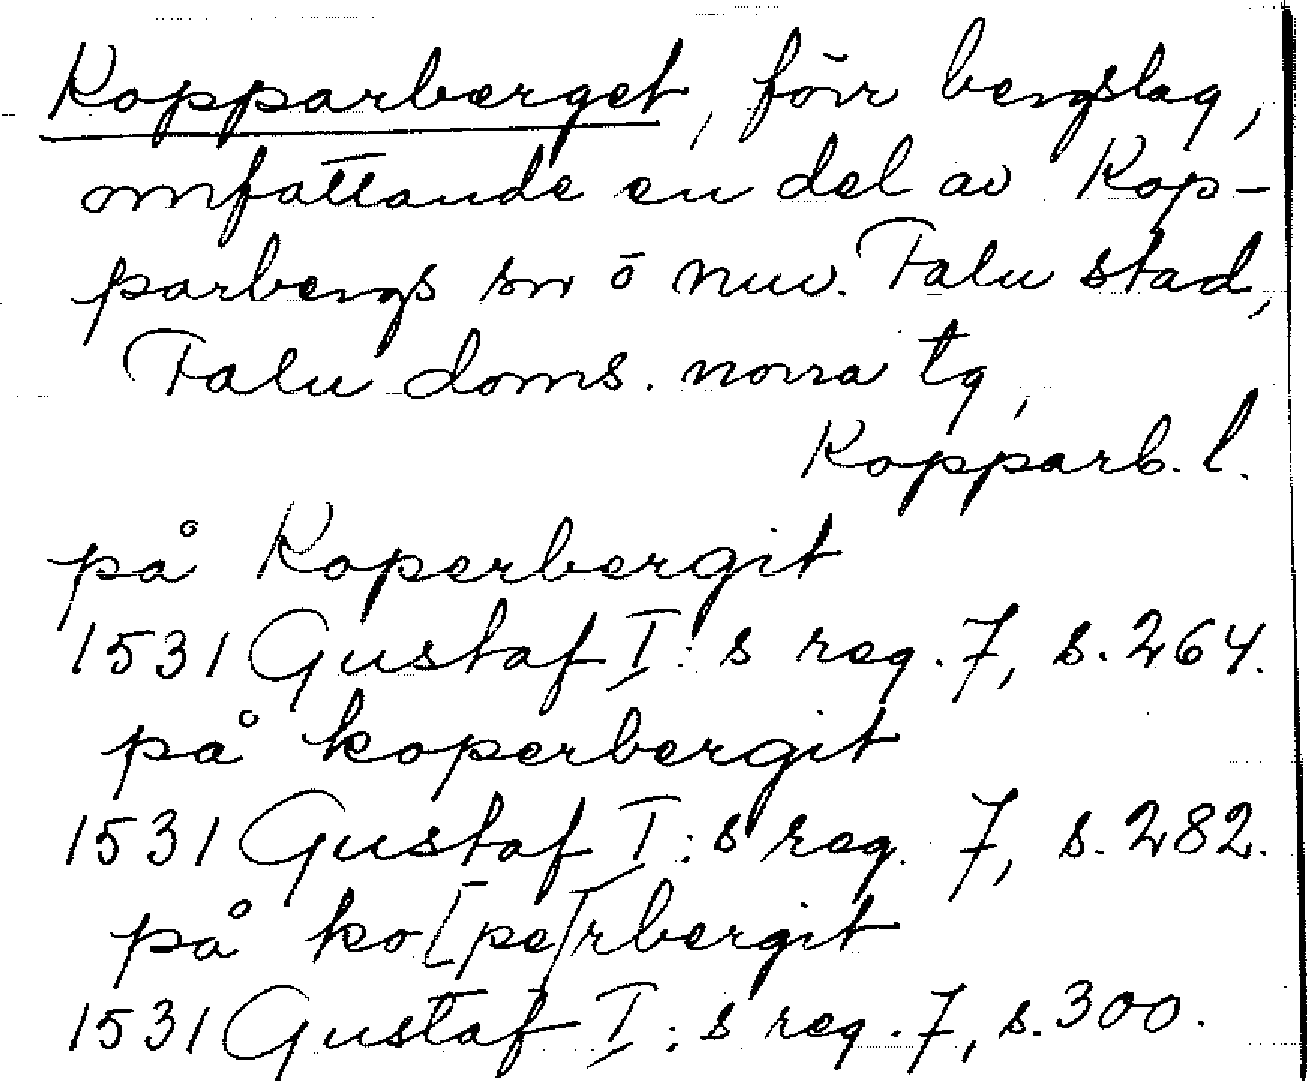 Kopparberget, förr bergslag,
omfattande en del av Kop-
parbergs sn o nuv. Falu stad,
Falu doms. norra tg,
Kopparb. l.
på Koperbergit
1531 Gustaf I:s reg. 7, s. 264.
på koperbergit
1531 Gustaf I:s reg. 7, s. 282.
på ko[pe]rbergit
1531 Gustaf I:s reg. 7, s. 300.